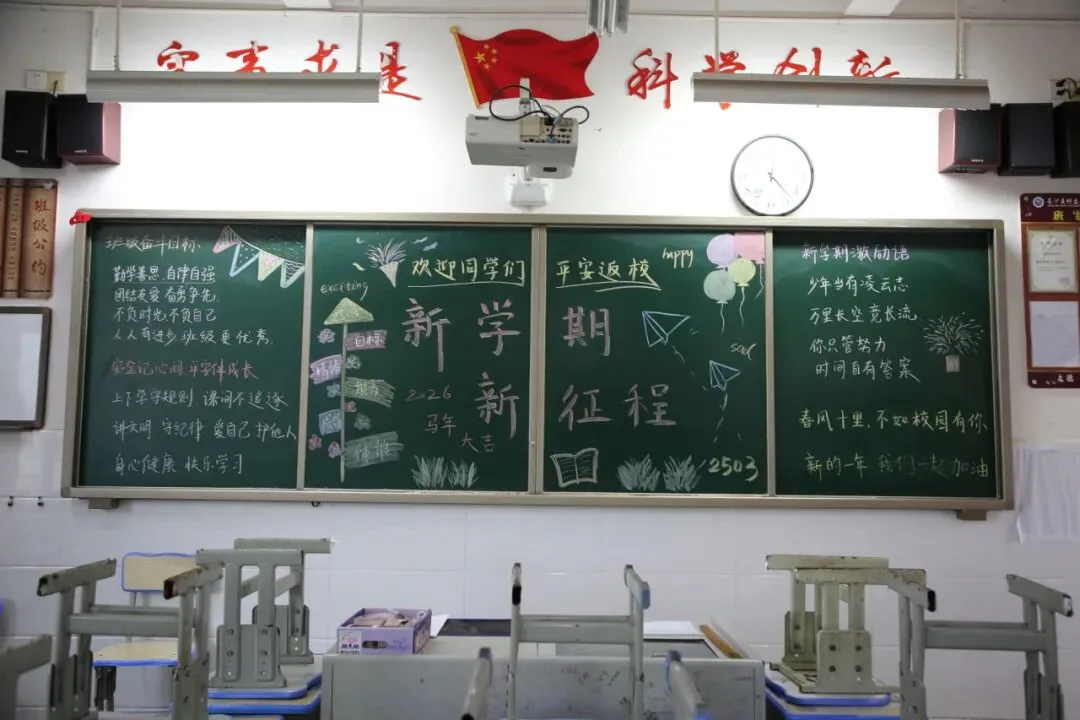 求是
科学创新
班级公约
班级奋斗目标
勤学善思、自律自强
团结友爱 奋勇争先
不负时光,不负自己
人人有进步 班级更优秀
安全记心间 平安伴成长
上下学守规则 课间不追逐
讲文明 守纪律 爱自己 护他人
身心健康 快乐学习
exciting
欢迎同学们
平安返校
happy
新学期
新征程
目标
2026
马年
大吉
sad
2503
新学期激励语
少年当有凌云志
万里长空竞长流
你只管努力
时间自有答案
春风十里,不如校园有你
新的一年 我们一起加油